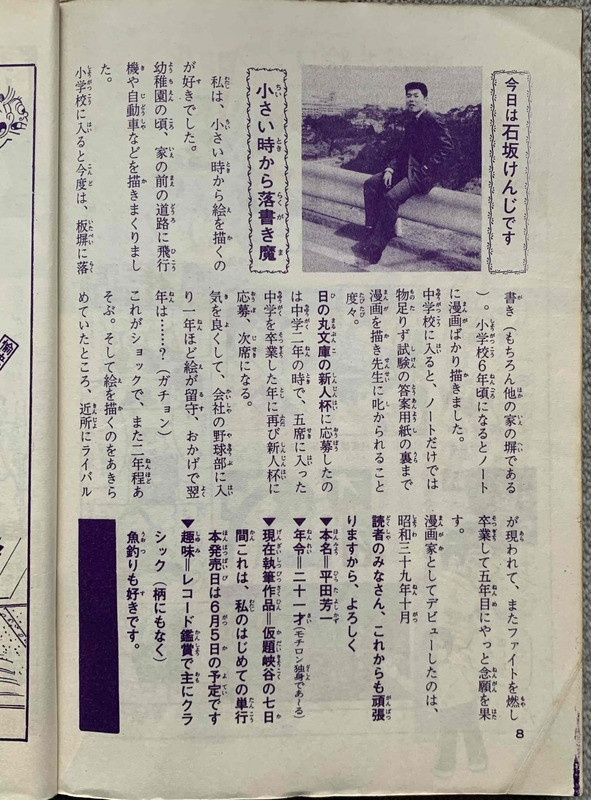 今日は石坂けんじです
小さい時から落書き魔
私は、小さい時から絵を描くの
が好きでした。
幼稚園の頃、家の前の道路に飛行
機や自動車などを描きまくりまし
た。
小学校に入ると今度は、板塀に落
書き（もちろん他の家の塀である
）。小学校6年頃になるとノート
に漫画ばかり描きました。
中学校に入ると、ノートだけでは
物足りず試験の答案用紙の裏まで
漫画を描き先生に叱かられること
度々。
日の丸文庫の新人杯に応募したの
は中学二年の時で、五席に入った
中学を卒業した年に再び新人杯に
応募、次席になる。
気を良くして、会社の野球部に入
り一年ほど絵が留守、おかげで翌
年は……？（ガチョン）
これがショックで、また二年程あ
そぶ。そして絵を描くのをあきら
めていたところ、近所にライバル
が現われて、またファイトを燃し
卒業して五年目にやっと念願を果
す。
漫画家としてデビューしたのは、
昭和三十九年十月
読者のみなさん、これからも頑張
りますから、よろしく
▼本名＝平田芳一
▼年令＝二十一才（モチロン独身であ〜る）
▼現在執筆作品＝仮題峡谷の七日
間これは、私のはじめての単行
本発売日は6月5日の予定です
▼趣味＝レコード鑑賞で主にクラ
シック（柄にもなく）
魚釣りも好きです。
8